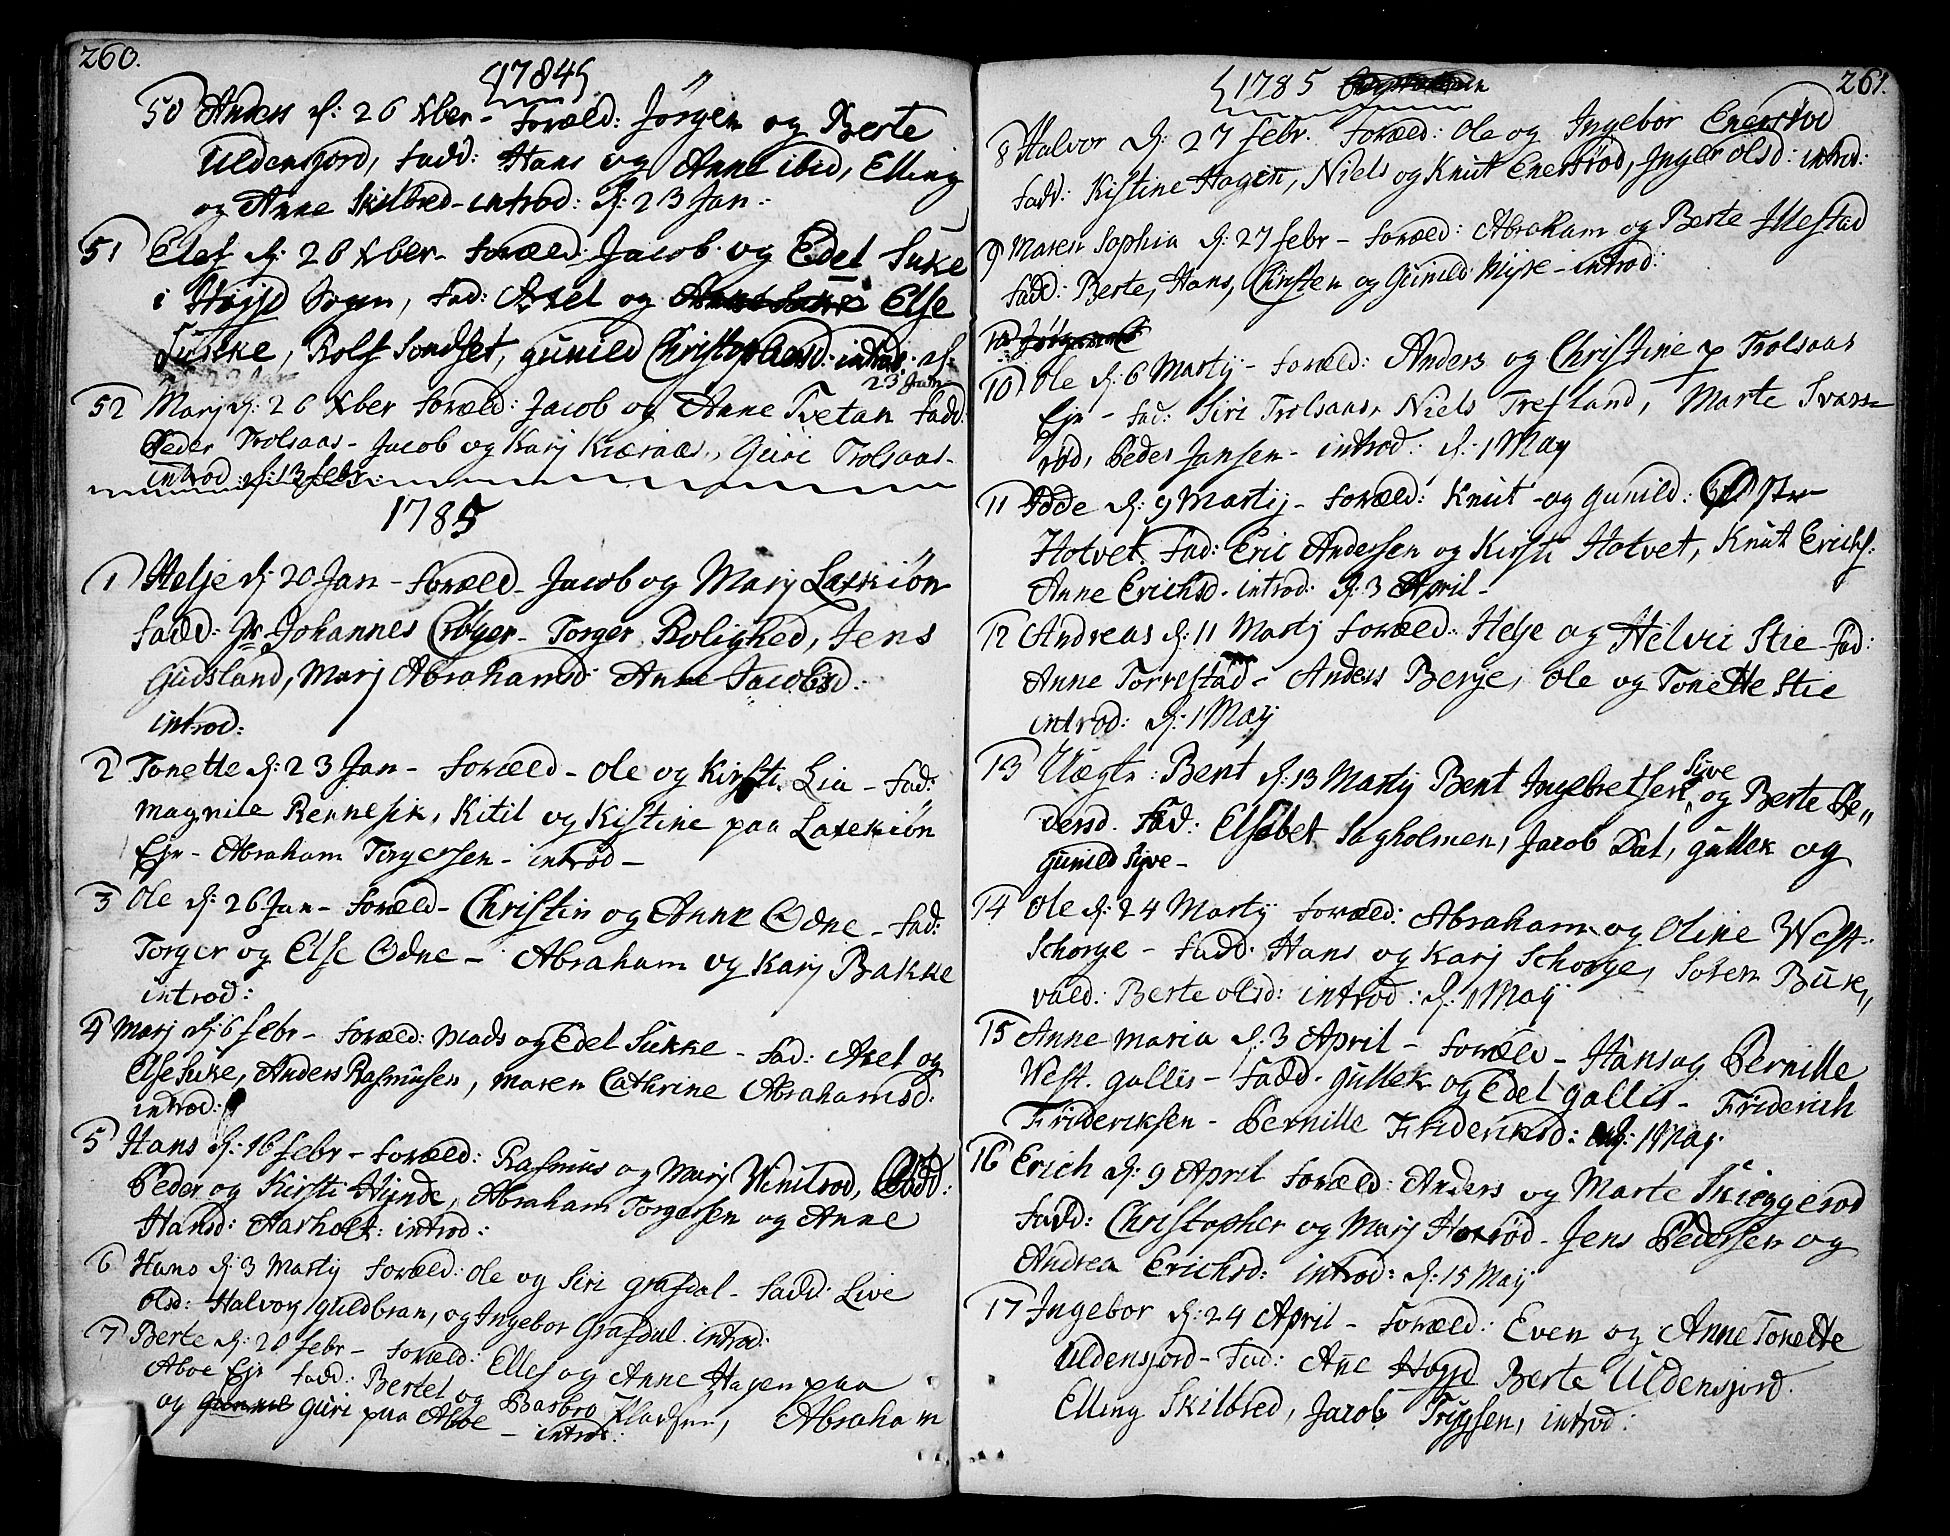 260.
1784
50 Anders d: 26 Xber - foræld: Jörgen og Berte
Uldensjord, fadd: Hans og Anne ibid, Elling
og Anne Skilbred - introd: d: 23 Jan:
51 Elef d: 26 Xber - foræld: Jacob og Edel Suke
i Sogn, fad: Axel og Else
Sukke, Rolf Sondset, gunild Christophersd: introd: d:
23 Jan
52 Marj d: 26 Xber foræld: Jacob og Anne Tvetan fadd:
Peder Trolsaas - Jacob og Karj Kiæraas, Guri Trolsaas -
introd: d: 13 febr:
1785
1 Helje d: 20 Jan - foræld - Jacob og Marj Laxkiön
fadd: Hr Johannes Cröger - Torger Rolighed, Jens
Gusland, Marj Abrahamsd: Anne Jacobsd:
introd:
2 Tonette d: 23 Jan - foræld - Ole og Kirsti Lia - fad:
Magnile Rennesik, Kitil og Kistine paa Laxekiön
Ejn - Abraham Torgersen - introd -
3 Ole d: 26 Jan - foræld - Christin og Anne Odne - fad:
Torger og Else Odne - Abraham og Karj Bakke
introd:
4 Marj d: 6 febr - foræld: Mads og Edel Sukke - fad: Axel og
Else Suke, Anders Rasmusen, Maren Cathrine Abrahamsd:
introd:
5 Hans d: 16 febr - foræld: Rasmus og Marj Vinilrod, fadd:
Peder og Kirsti Hynde, Abraham Torgersen og Anne
Hansd: Aarholt: introd:
6 Hans d: 3 Martij foræld: Ole og Siri Grafdal - fadd: Live
Olsd: Halvor, Guldbran, og Ingebor Grafdal. introd:
7 Berte d: 20 febr - foræld: Ellef og Anne Hagen paa
Aboe Ejn fadd: Bertel og Barbro Pladsen, Abraham
og Guri paa Aboe - introd:
261.
1785
8 Halvor d: 27 febr. foræld: Ole og Ingebor Enersröd
fadd: Kistine Hagen, Niels og Knut Enersröd, Inger Olsd: introd:
9 Maren Sophia d: 27 febr - foræld: Abraham og Berte Illestad
fadd: Berte, Hans, Christen og Gunild Myre - introd:
10 Ole d: 6 Martij - foræld: Anders og Christine p Trolsaas
Ejn - fad: Siri Trolsaas, Niels Trefland, Marte Svars-
röd, Peder Jansen - introd: d: 1 May
11 Aade d: 9 Martij - foræld: Knut og Gunild: Östr
Hotvet. fad: Eric Andersen og Kirsti Hotvet, Knut Erichs:
Anne Erichsd. introd: d: 3 April -
12 Andreas d: 11 Martij foræld: Helje og Helvii Stie fad:
Anne Torrestad - Anders Berje, Ole og Tonette Stie
introd: d: 1 May
13 Uægte: Bent d: 13 Martij Bent Ingebretsen Sive og Berte Pe,,
dersd. fad: Elsebet Sagholmen, Jacob Dal, Gullek og
Gunild Sive -
14 Ole d: 24 Martij foræld: Abraham og Oline West.
Schorge - fadd: Hans og Karj Schorge, Soren Buxe,,
vald: Berte Olsd: introd: d: 1 May
15 Anne Maria d: 3 April - foræld - Hans og Pernille
West. Gallis - fadd - Gullek og Edel Gallis - Friderich
Frideriksen - Pernille Frideriksd: d: 1 May:
16 Erich d: 9 April foræld: Anders og Marte Skieggerod
fadd: Christopher og Marj Horröd - Jens Pedersen og
Andrea Erichsd: introd: d: 15 May
17 Ingebor d: 24 April - foræld: Even og Anne Tonette
Uldensjord - fad: Anne Berte Uldensjord.
Elling Skilbred, Jacob Trygsen, introd: